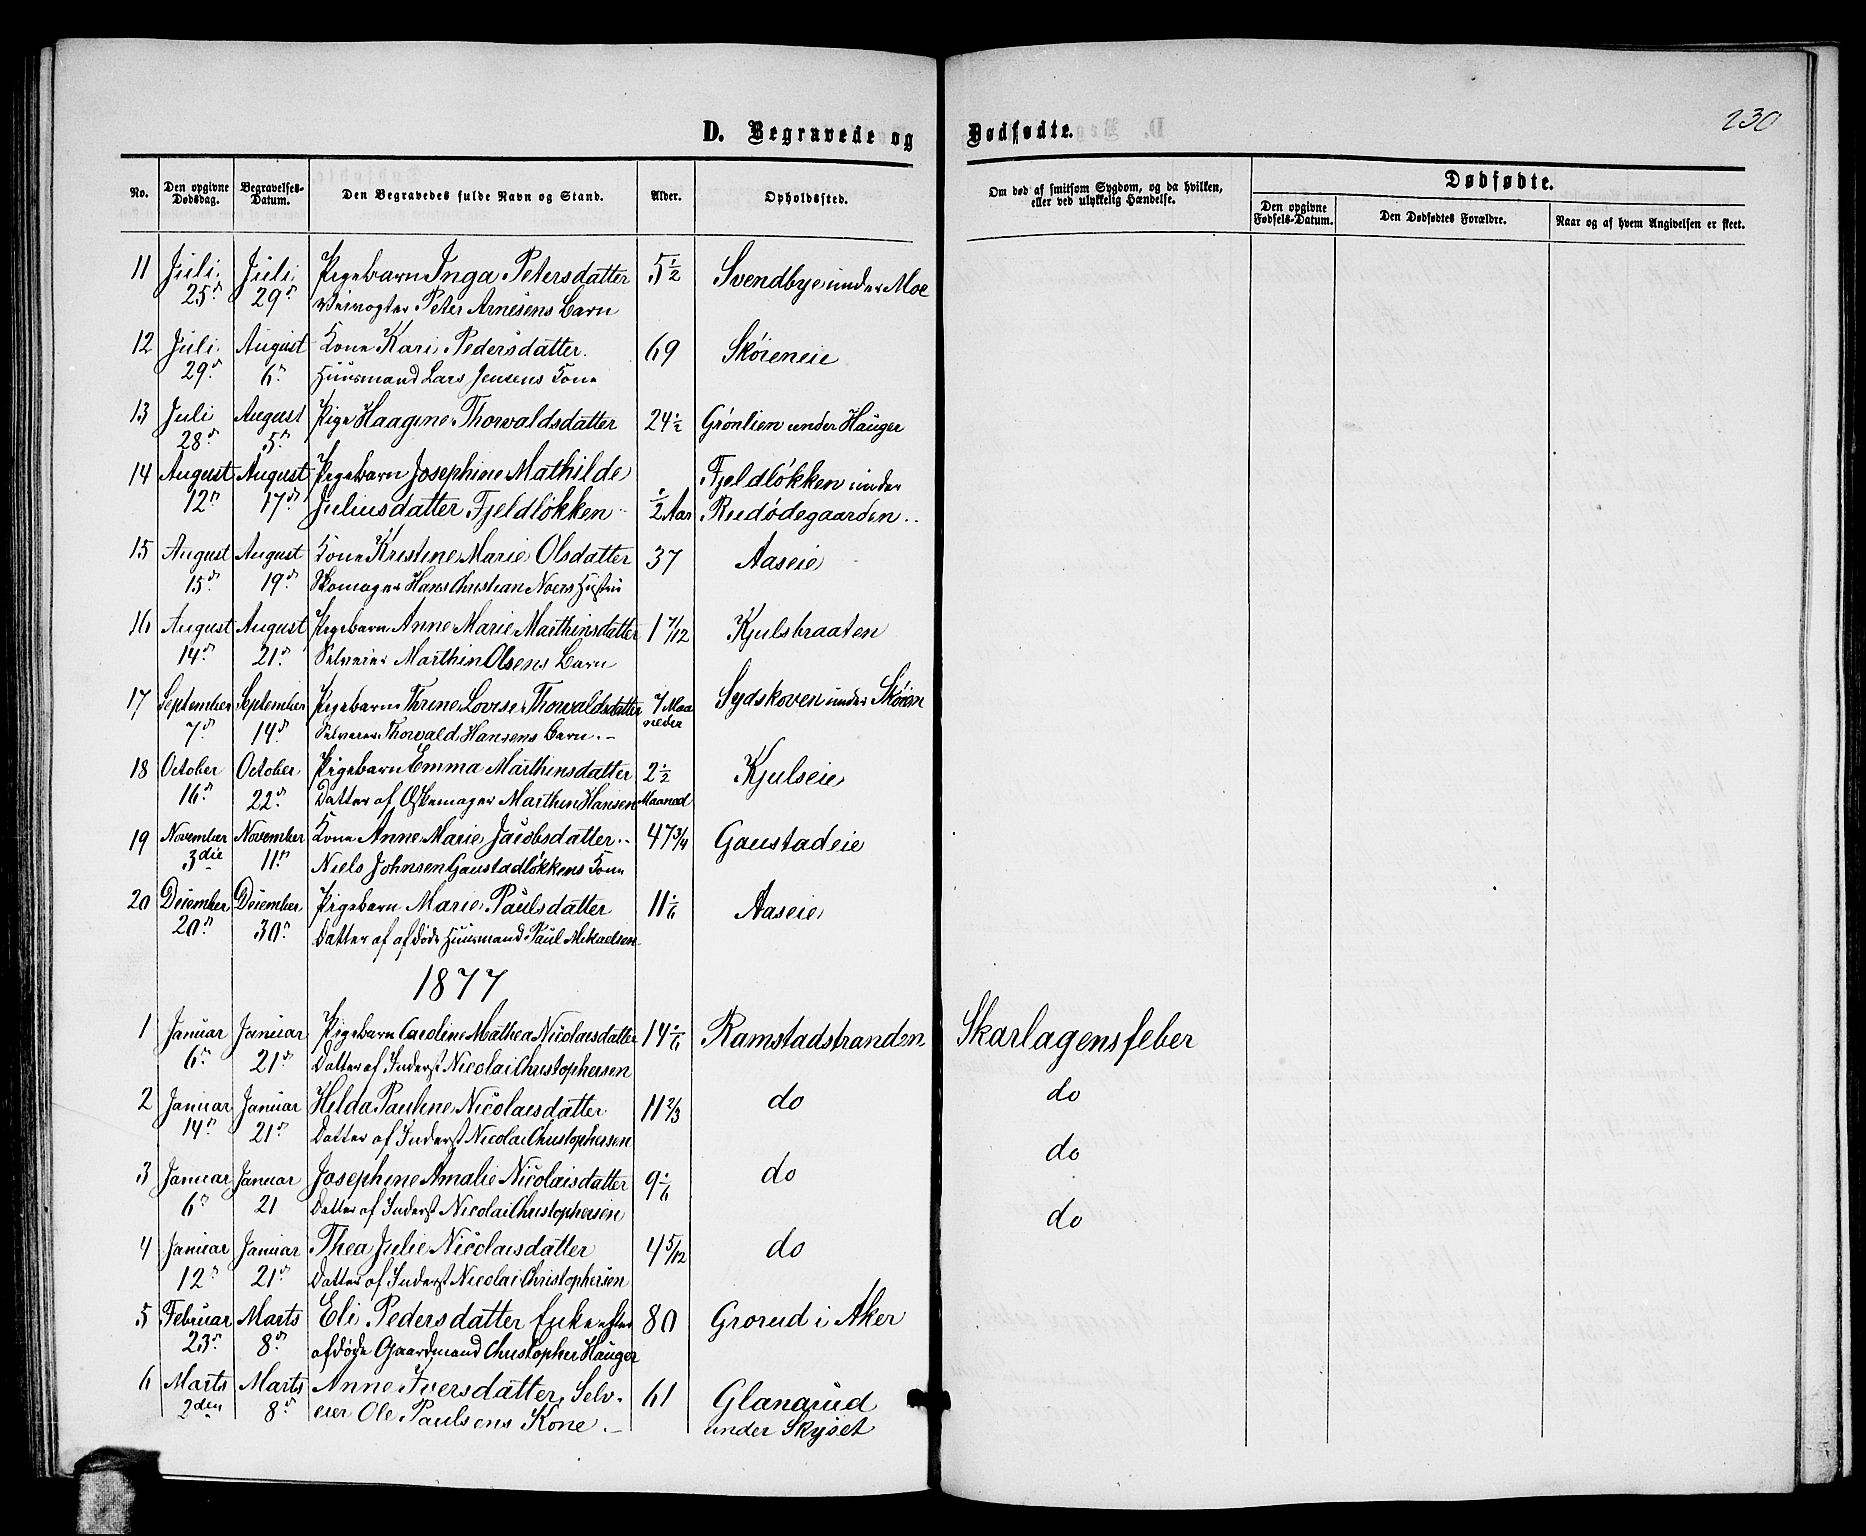 230
D. Begravede og Dødfødte.
No. Den opgivne Dødsdag. Begravelses-Datum. Den Begravedes fulde Navn og Stand. Alder. Opholdssted. Om død af smitsom Sygdom, og da hvilken, eller ved ulykkelig Hændelse. Dødfødte.
Den opgivne Fødsels-Datum. Den Dødfødtes Forældre. Naar og af hvem Angivelsen er skeet.
11 Juli Juli Pigebarn Inga Petersdatter 5 1/2 Svendbye under Moe
25d 29d Peter Arnesens Barn
12 Juli August Kone Kari Pedersdatter. 69 Skøieneie
29d 6d Huusmand Lars Jensens Kone
13 Juli August Pige Haagine Thorvaldsdatter 24 1/2 Grønlien under Hauger
28d 5d
14 August August Pigebarn Josephine Mathilde Fjeldløkken under
12d 17d Juliusdatter Fjeldløkken 1/2 Aar Rudødegaarden
15 August August Kone Kristine Marie Olsdatter 37 Aaseie
15d 19d Skomager Hans Christian Noers Hustru
16 August August Pigebarn Anne Marie Marthinsdatter 1 7/12 Kjulsbraaten
14d 21d Selveier Marthin Olsens Barn
17 September September Pigebarn Thrine Lovise Thorvaldsdatter 7 Maaneder Sydskoven under Skøien
7d 14d Selveier Thorvald Hansens Barn.
18 October October Pigebarn Emma Marthinsdatter 2 1/2 Kjulseie
16d 22d Datter af Skomager Marthin Hansen Maaned
19 November November Kone Anne Marie Jacobsdatter 47 3/4 Gaustadeie
3die 11d Niels Johnsen Gaustadløkkens Kone
20 December December Pigebarn Marie Paulsdatter 11 1/6 Aaseie
20d 30d Datter af afdøde Huusmand Paul Mikaelsen
1877
1 Januar Januar Pigebarn Caroline Mathea Nicolaisdatter 14 1/6 Ramstadstranden Skarlagensfeber
6d 21d Datter af Inderst Nicolai Christophersen
2 Januar Januar Hilda Pauline Nicolaisdatter 11 2/3 do do
14d 21d Datter af Inderst Nicolai Christophersen
3 Januar Januar Josephine Amalie Nicolaisdatter 9 1/6 do do
6d 21 Datter af Inderst Nicolai Christophersen
4 Januar Januar Thea Julie Nicolaisdatter 4 5/12 do do
12d 21d Datter af Inderst Nicolai Christophersen
5 Februar Marts Eli Pedersdatter Enke efter 80 Grorud i Aker
23d 8d afdøde Gaardmand Christopher Hauger
6 Marts Marts Anne Iversdatter, Selv- 61 Glanarud
2den 8d eier Ole Paulsens Kone. under Skyset